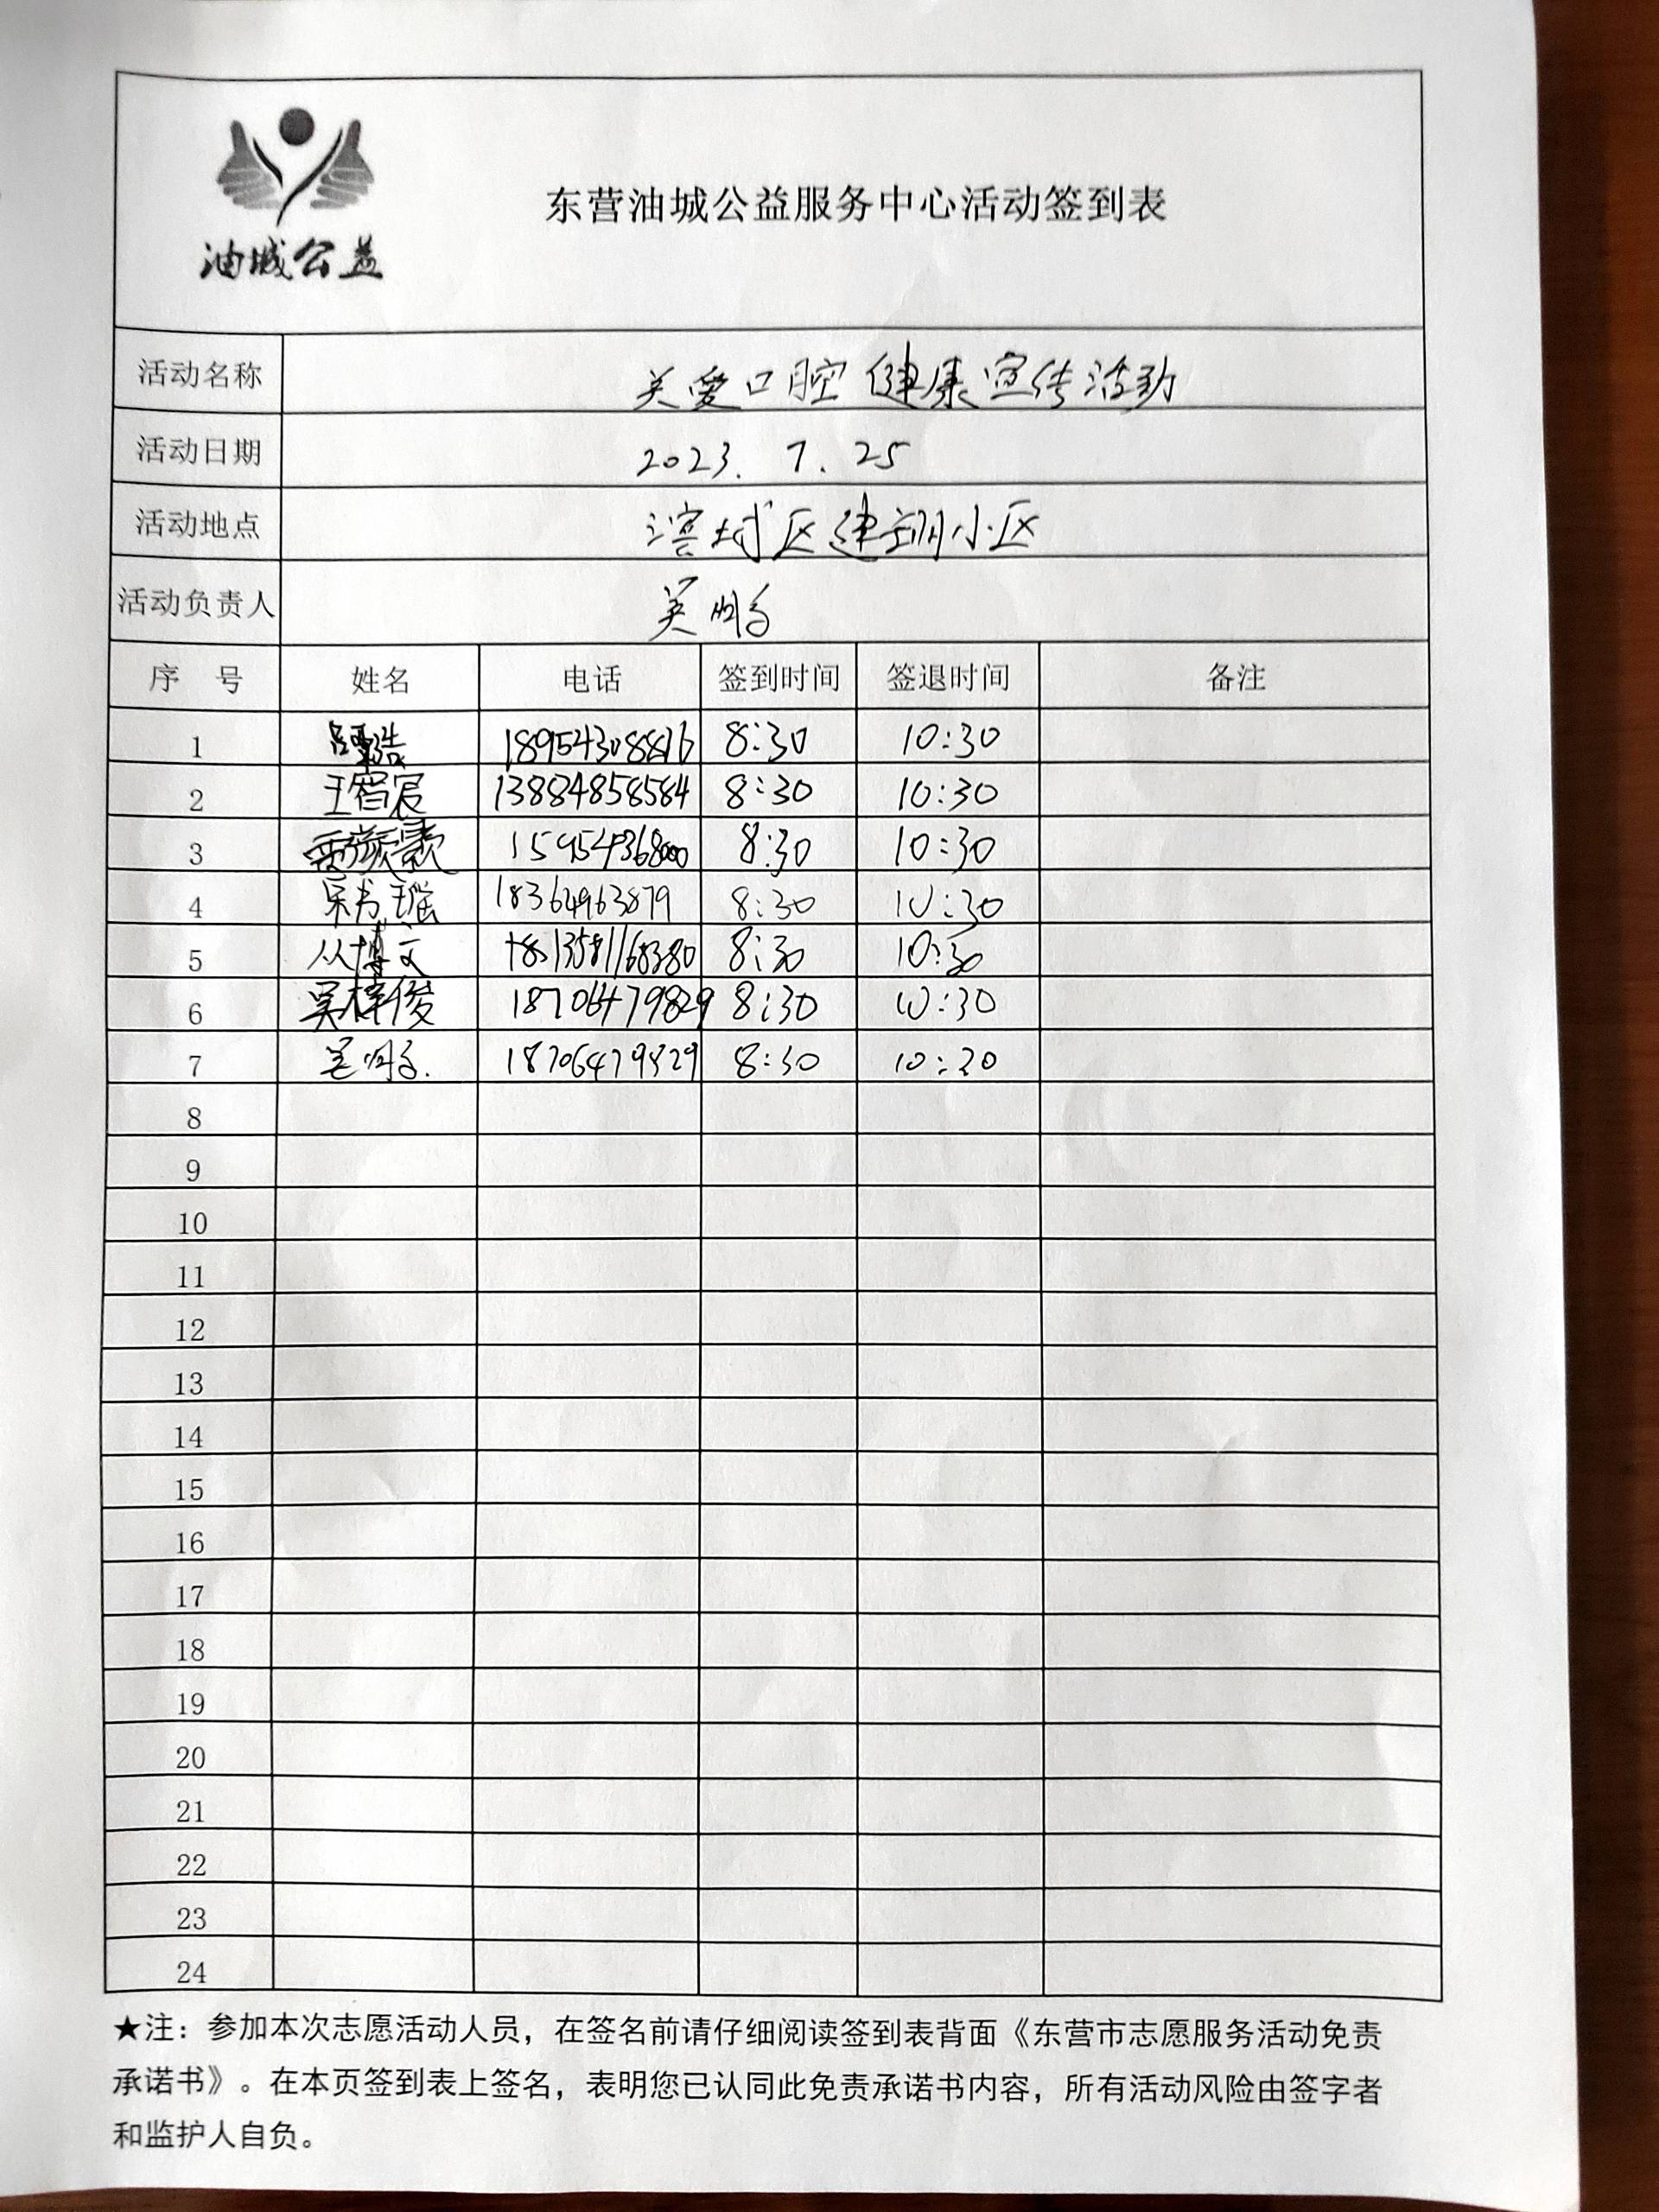 油城公益
东营油城公益服务中心活动签到表
活动名称 关爱口腔健康宣传活动
活动日期 2023. 7. 25
活动地点 滨城区建翔小区
活动负责人 吴鹏
序 号 姓名 电话 签到时间 签退时间 备注
1 浩 8:30 10:30
2 王睿宸 13884858584 8:30 10:30
3 8:30 10:30
4 宋书瑶 18364963879 8:30 10:30
5 从博文 8:30 10:30
6 吴梓俊 18706479829 8:30 10:30
7 吴鹏 18706479829 8:30 10:30
8
9
10
11
12
13
14
15
16
17
18
19
20
21
22
23
24
★注：参加本次志愿活动人员，在签名前请仔细阅读签到表背面《东营市志愿服务活动免责
承诺书》。在本页签到表上签名，表明您已认同此免责承诺书内容，所有活动风险由签字者
和监护人自负。